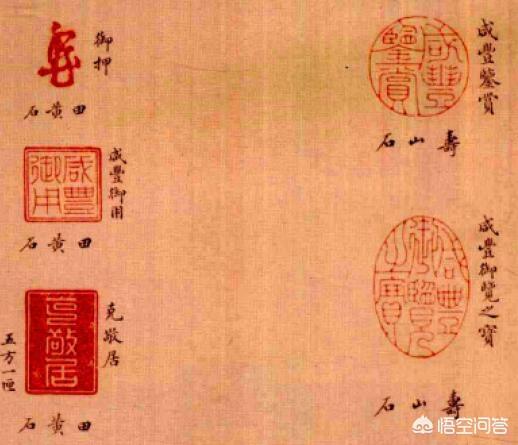 咸豐鑒賞
咸豐鑒賞
壽山石
咸豐御覽之寶
咸豐御覽之寶
壽山石
御押
田黃石
咸豐御用
咸豐御用
田黃石
克敬居
克敬居
五方一匣
田黃石
悟空问答